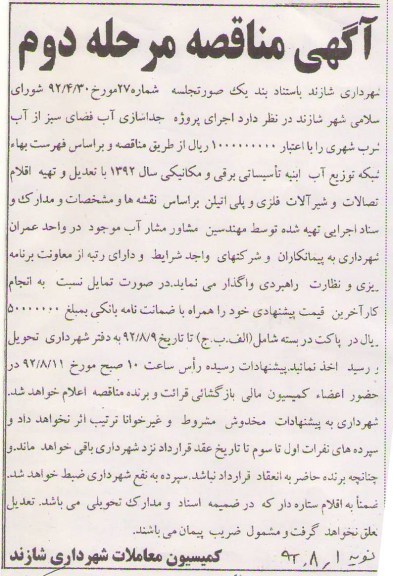 آگهی مناقصه مرحله دوم
شهرداری شازند باستناد بند یک صورتجلسه شماره ۲۷مورخ ۹۲/۴/۳۰ شورای
سلامی شهر شازند در نظر دارد اجرای پروژه جداسازی آب فضای سبز از آب
شرب شهری را با اعتبار ۱۰۰۰۰۰۰۰۰۰ ریال از طریق مناقصه و براساس فهرست بهاء
شبکه توزیع آب ابنیه تأسیساتی برقی و مکانیکی سال ۱۳۹۲ با تعدیل و تهیه اقلام
تصالات و شیر آلات فلزی و پلی اتیلن براساس نقشه ها و مشخصات و مدارک و
سناد اجرایی تهیه شده توسط مهندسین مشاور مشار آب موجود در واحد عمران
شهرداری به پیمانکاران و شرکتهای واجد شرایط و دارای رتبه از معاونت برنامه
ریزی و نظارت راهبردی واگذار می نماید.در صورت تمایل نسبت به انجام
کار آخرین قیمت پیشنهادی خود را همراه با ضمانت نامه بانکی بمبلغ ۵۰۰۰۰۰۰۰
ریال در پاکت در بسته شامل(الف.ب.ج) تا تاریخ ۹۲/۸/۹ به دفتر شهرداری تحویل
و رسید اخذ نمائید.پیشنهادات رسیده رأس ساعت ۱۰ صبح مورخ ۹۲/۸/۱۱ در
حضور اعضاء کمیسیون مالی بازگشائی قرائت و برنده مناقصه اعلام خواهد شد.
شهرداری به پیشنهادات مخدوش مشروط و غیرخوانا ترتیب اثر نخواهد داد و
سپرده های نفرات اول تا سوم تا تاریخ عقد قرارداد نزد شهرداری باقی خواهد ماند.و
چنانچه برنده حاضر به انعقاد قرارداد نباشد.سپرده به نفع شهرداری ضبط خواهد شد.
ضمناً به اقلام ستاره دار که در ضمیمه اسناد و مدارک تحویلی می باشد. تعدیل
تعلق نخواهد گرفت و مشمول ضریب پیمان می باشند.
کمیسیون معاملات شهرداری شازند
۹۲،۸،۱